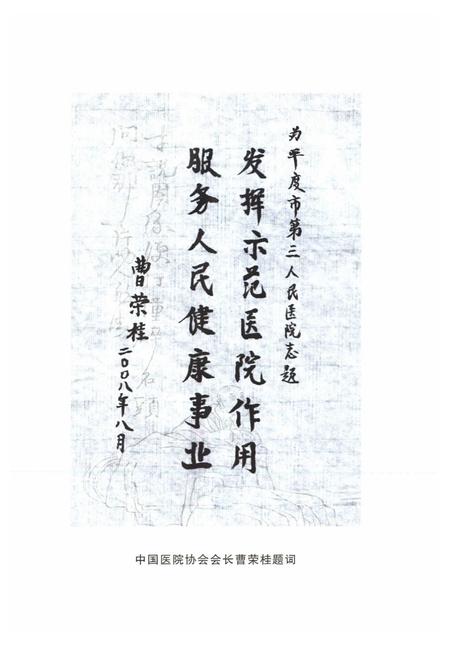 为平度市第三人民医院志题
发挥示范医院作用
服务人民健康事业
曹荣桂
二〇〇八年八月
中国医院协会会长曹荣桂题词